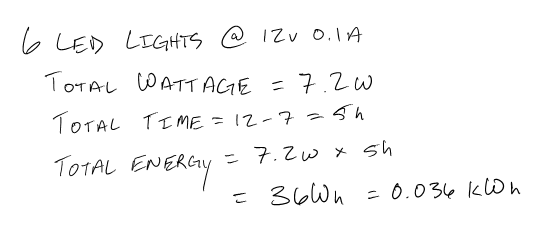 6 LED LIGHTS @ 12v 0.1A
TOTAL WATTAGE = 7.2w
TOTAL TIME = 12-7 = 5h
TOTAL ENERGY = 7.2w x 5h
= 36Wh = 0.036 kWh